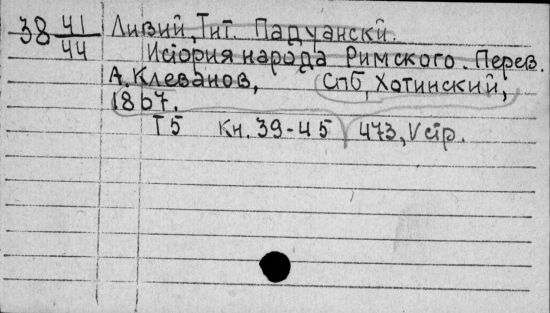 38 41/44 Ливий, Тит. Падуански.
История народа Римского. Перев.
А. Клеванов, Спб, Хотинский,
1867.
Т 5 Кн. 39-45 473, V стр.